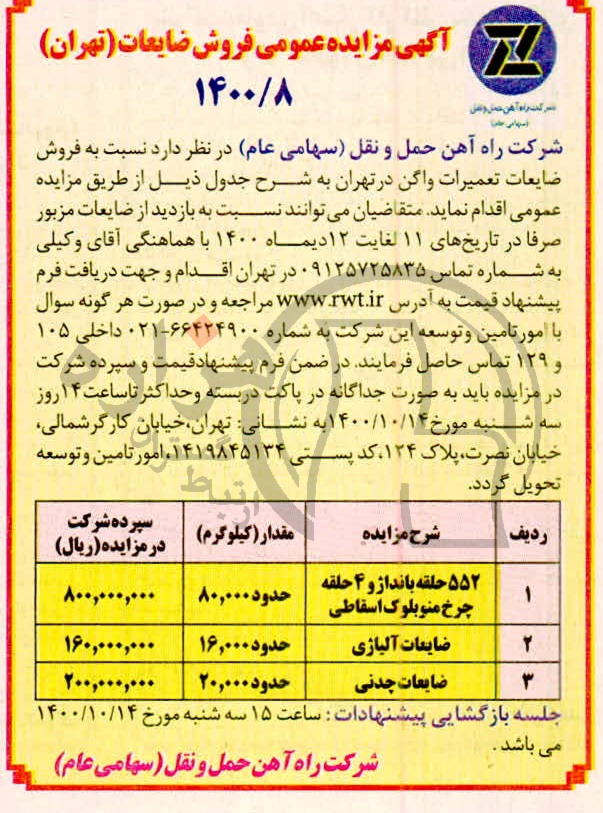 آگهی مزایده عمومی فروش ضایعات (تهران)
۱۴۰۰/۸
شرکت راه آهن حمل و نقل
(سهامی عام)
شرکت راه آهن حمل و نقل (سهامی عام) در نظر دارد نسبت به فروش
ضایعات تعمیرات واگن در تهران به شرح جدول ذیل از طریق مزایده
عمومی اقدام نماید. متقاضیان می‌توانند نسبت به بازدید از ضایعات مزبور
صرفا در تاریخ‌های ۱۱ لغایت ۱۲ دیماه ۱۴۰۰ با هماهنگی آقای وکیلی
به شماره تماس ۰۹۱۲۵۷۲۵۸۳۵ در تهران اقدام و جهت دریافت فرم
پیشنهاد قیمت به آدرس www.rwt.ir مراجعه و در صورت هر گونه سوال
با امور تامین و توسعه این شرکت به شماره ۶۶۴۲۴۹۰۰-۰۲۱ داخلی ۱۰۵
و ۱۲۹ تماس حاصل فرمایند. در ضمن فرم پیشنهاد قیمت و سپرده شرکت
در مزایده باید به صورت جداگانه در پاکت دربسته و حداکثر تا ساعت ۱۴ روز
سه شنبه مورخ ۱۴۰۰/۱۰/۱۴ به نشانی: تهران، خیابان کارگر شمالی،
خیابان نصرت، پلاک ۱۲۴، کد پستی ۱۴۱۹۸۴۵۱۳۴، امور تامین و توسعه
تحویل گردد.
ردیف شرح مزایده مقدار (کیلوگرم) سپرده شرکت در مزایده (ریال)
۱ ۵۵۲ حلقه بانداژ و ۴ حلقه چرخ منوبلوک اسقاطی حدود ۸۰,۰۰۰ ۸۰۰,۰۰۰,۰۰۰
۲ ضایعات آلیاژی حدود ۱۶,۰۰۰ ۱۶۰,۰۰۰,۰۰۰
۳ ضایعات چدنی حدود ۲۰,۰۰۰ ۲۰۰,۰۰۰,۰۰۰
جلسه بازگشایی پیشنهادات: ساعت ۱۵ سه شنبه مورخ ۱۴۰۰/۱۰/۱۴
می باشد.
شرکت راه آهن حمل و نقل (سهامی عام)